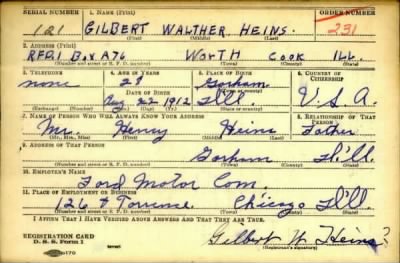 SERIAL NUMBER 1. NAME (Print) ORDER NUMBER
121 GILBERT WALTHER HEINS. 231
(First) (Middle) (Last)
2. ADDRESS (Print)
RFD.1 Box A76 WORTH COOK ILL.
(Number and street or R. F. D. number) (Town) (County) (State)
3. TELEPHONE 4. AGE IN YEARS 5. PLACE OF BIRTH 6. COUNTRY OF CITIZENSHIP
none 28 Gorham
DATE OF BIRTH (Town or county)
Aug 22 1912 Ill. U.S.A.
(Exchange) (Number) (Mo.) (Day) (Yr.) (State or country)
7. NAME OF PERSON WHO WILL ALWAYS KNOW YOUR ADDRESS 8. RELATIONSHIP OF THAT PERSON
Mr. Henry Heins Father
(Mr., Mrs., Miss) (First) (Middle) (Last)
9. ADDRESS OF THAT PERSON
Gorham Ill.
(Number and street or R. F. D. number) (Town) (County) (State)
10. EMPLOYER'S NAME
Ford Motor Com.
11. PLACE OF EMPLOYMENT OR BUSINESS
126 & Torrence. Chicago Ill.
(Number and street or R. F. D. number) (Town) (County) (State)
I AFFIRM THAT I HAVE VERIFIED ABOVE ANSWERS AND THAT THEY ARE TRUE.
REGISTRATION CARD
D. S. S. Form 1 Gilbert W. Heins